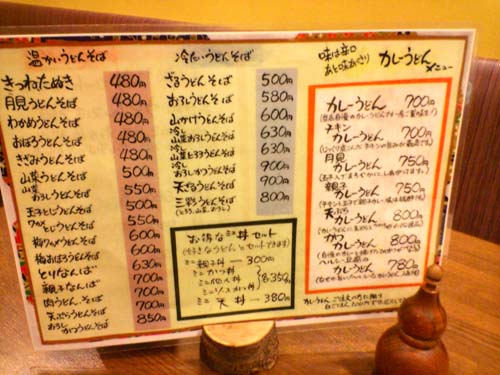 温かいうどんそば
きつねたぬき 480円
月見うどんそば 480円
わかめうどんそば 480円
おぼろうどんそば 480円
きざみうどんそば 480円
山菜うどんそば 500円
山菜おろしうどんそば 550円
玉子とじうどんそば 500円
わかめとじうどんそば 550円
梅わかめうどんそば 600円
梅おぼろうどんそば 630円
とりなんば 700円
親子なんば 700円
肉うどん、そば 700円
天ぷらうどんそば 700円
おろしかつうどんそば 850円
冷たいうどんそば
ざるうどんそば 500円
おろしうどんそば 580円
山かけうどんそば 600円
冷し山菜おろしうどんそば 630円
冷し山菜とろろうどんそば 700円
おろしかつうどんそば 900円
天ざるうどんそば 900円
三彩うどんそば 800円
お得なミニ丼セット
(好きなうどんとセットできます)
ミニ親子丼 ー 300円
ミニかつ丼
ミニソースかつ丼
各350円
ミニ天丼 ー 380円
味は辛口
あと味あっさり
カレーうどん
メニュー
カレーうどん 700円
チキンカレーうどん 700円
月見カレーうどん 750円
親子カレーうどん 750円
天ぷらカレーうどん 800円
かつカレーうどん 800円
カレーうどん 780円